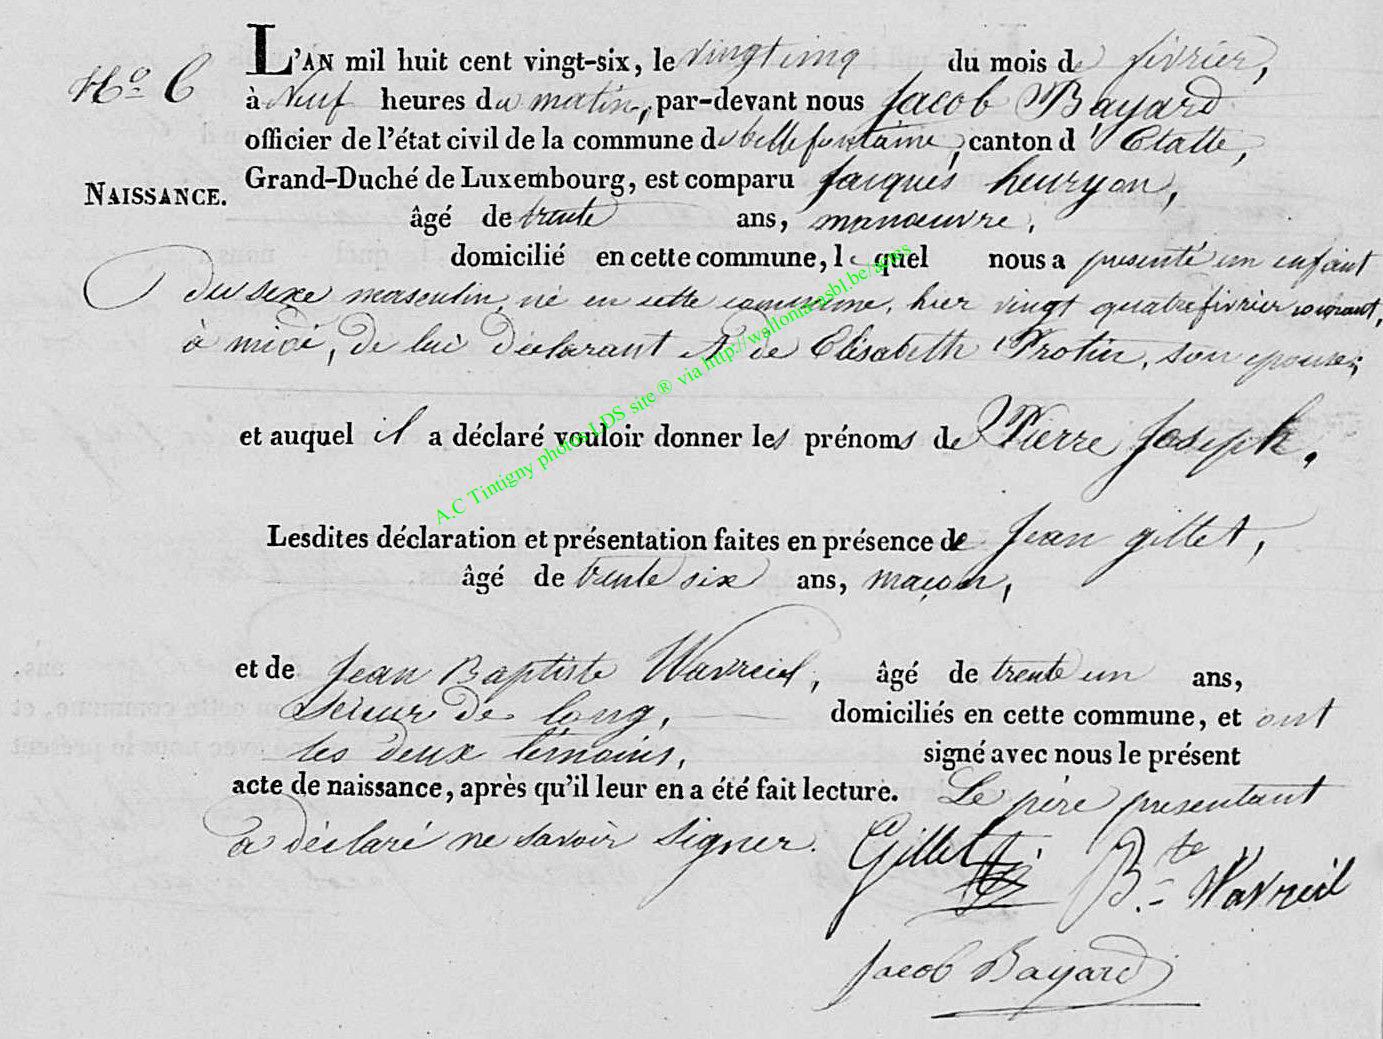 N.º 6
L'AN mil huit cent vingt-six, le vingt cinq du mois de février,
à Neuf heures du matin, par-devant nous Jacob Bayard
officier de l'état civil de la commune de bellefontaine, canton d'Etalle,
NAISSANCE.
Grand-Duché de Luxembourg, est comparu Jacques henryon,
âgé de trente ans, manœuvre,
domicilié en cette commune, le quel nous a presenté un enfant
du sexe masculin, né en cette commune, hier vingt quatre février courant,
à midi, de lui déclarant et de Elisabeth Protin, son epouse;
et auquel il a déclaré vouloir donner les prénoms de Pierre Joseph.
Lesdites déclaration et présentation faites en présence de Jean gillet,
âgé de trente six ans, maçon,
et de Jean Baptiste Wavreil, âgé de trente un ans,
scieur de long, domiciliés en cette commune, et ont
les deux témoins, signé avec nous le présent
acte de naissance, après qu'il leur en a été fait lecture. Le père presentant
a déclaré ne savoir signer.
Gillet
B.te Wavreil
Jacob Bayard
A.C Tintigny photos LDS site ® via http://wallonia.asbl.be/actes